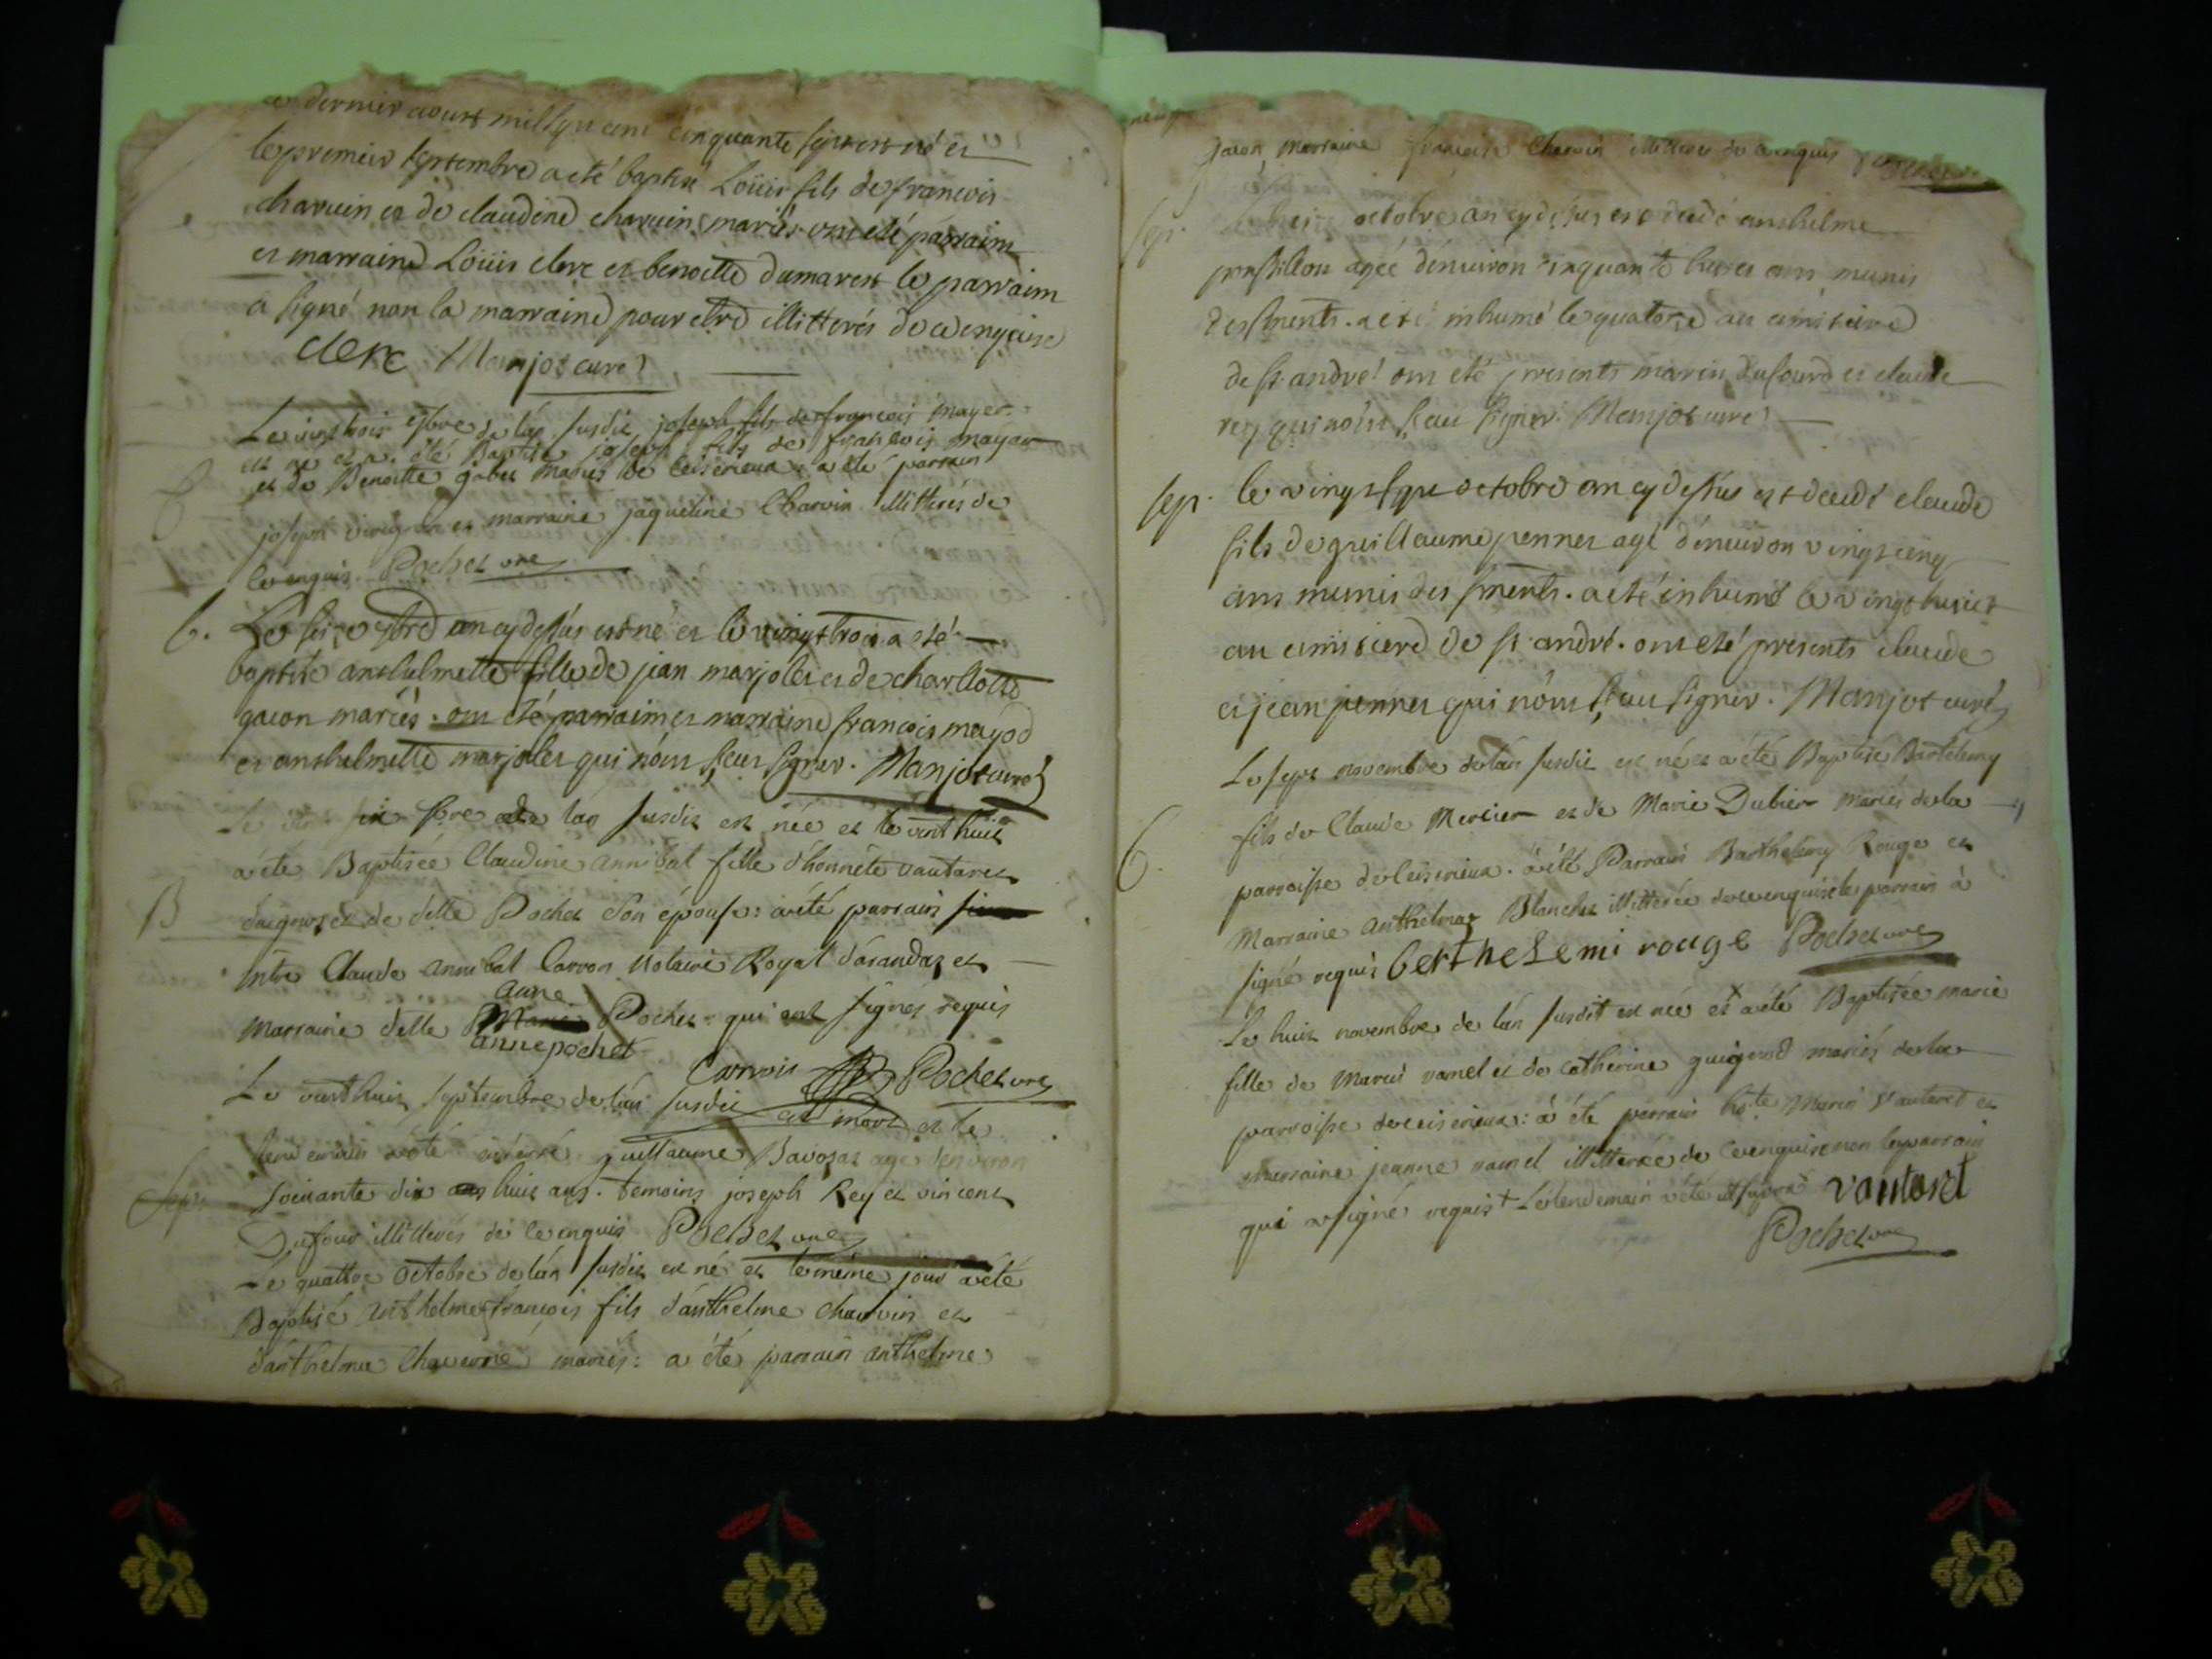 dernier aoust mil sept cent cinquante sept est né et
le premier septembre a eté baptisé Loüis fils de francois
charuin et de claudine charuin mariés ont eté parraim
et marraine Loüis clerc et benoitte dumarest le parraim
a signé non la marraine pour etre illitterés de ce enquise
clerc Manjot curé
Le vint trois 7bre de l'an susdit joseph fils de francois mayet
est né et a été Baptisé joseph fils de francois mayet
et de Benoitte gabet mariés de Ceiserieux a été parrain
joseph et marraine jaqueline Charvin illitterés de
ce enquis Pochet vre
b. Le seize 7bre an cy dessus est né et le vingt trois a eté
baptisé anthelmette fille de jean marjolet et de charllotte
gacon mariés. ont eté parraim et marraine francois mayod
et anthelmette marjolet qui nont sceu signer. Manjot curé
Le six 7bre de l'an susdit est née et le vint huit
a été Baptisée Claudine annibal fille d'honnête vautaret
et de delle Pochet son épouse: a été parrain
B
Mtre Claude annibal Carron Notaire Royal d'arandaz et
anne
Marraine delle Pochet qui ont signés requis
anne pochet
Carron Pochet vre
Le vint huit septembre de l'an susdit est mort et le
lendemain a été enterré guillaume Bavozat age denviron
Sep. soixante dix huit ans. temoins joseph Rey et vincent
Dufour illitterés de ce enquis Pochet vre
Le quattre octobre de l'an susdit est né et le même jour a été
Baptisé anthelme françois fils d'anthelme charvin et
d'anthelmie Chaverine mariés: a été parrain anthelme
gacon, marraine francoise Charvin illitterés de ce enquis
sep. octobre an cy dessus est decedé anthelme
prussillon agée denuiron cinquante huit ans munis
des sments. a eté inhumé le quatorze au cimistiere
de st. andré! ont eté presents marin dufourd et claude
rey qui nont sceu signer. Manjot curé
sep. le vingt sept octobre an cy dessus est decedé claude
fils de guillaume pennet agé denuiron vingt cinq
ans munis des sments. a eté inhumé le vingt huict
au cimistiere de st. andré. ont eté presents claude
et jean pennet qui nont sceu signer. Manjot curé
Le sept novembre de l'an susdit est né et a été Baptisé Barthelemy
fils de Claude Mercier et de Marie Dubier mariés de la
6.
parroisse de Ceiserieux. a été Parrain Barthelemy Rouge et
Marraine anthelmaz Blanchet illitterée de ce enquise le parrain à
signé requis berthelemi rouge Pochet vre
Le huit novembre de l'an susdit est née et a été Baptisée marie
fille de Marin ramel et de catherine guigard mariés de la
parroisse de Ceiserieux: à été parrain hte Marin Vautaret et
Marraine jeanne ramel illitterée de ce enquise non le parrain
qui a signé requis + Le lendemain a été ut supra vautaret
Pochet vre